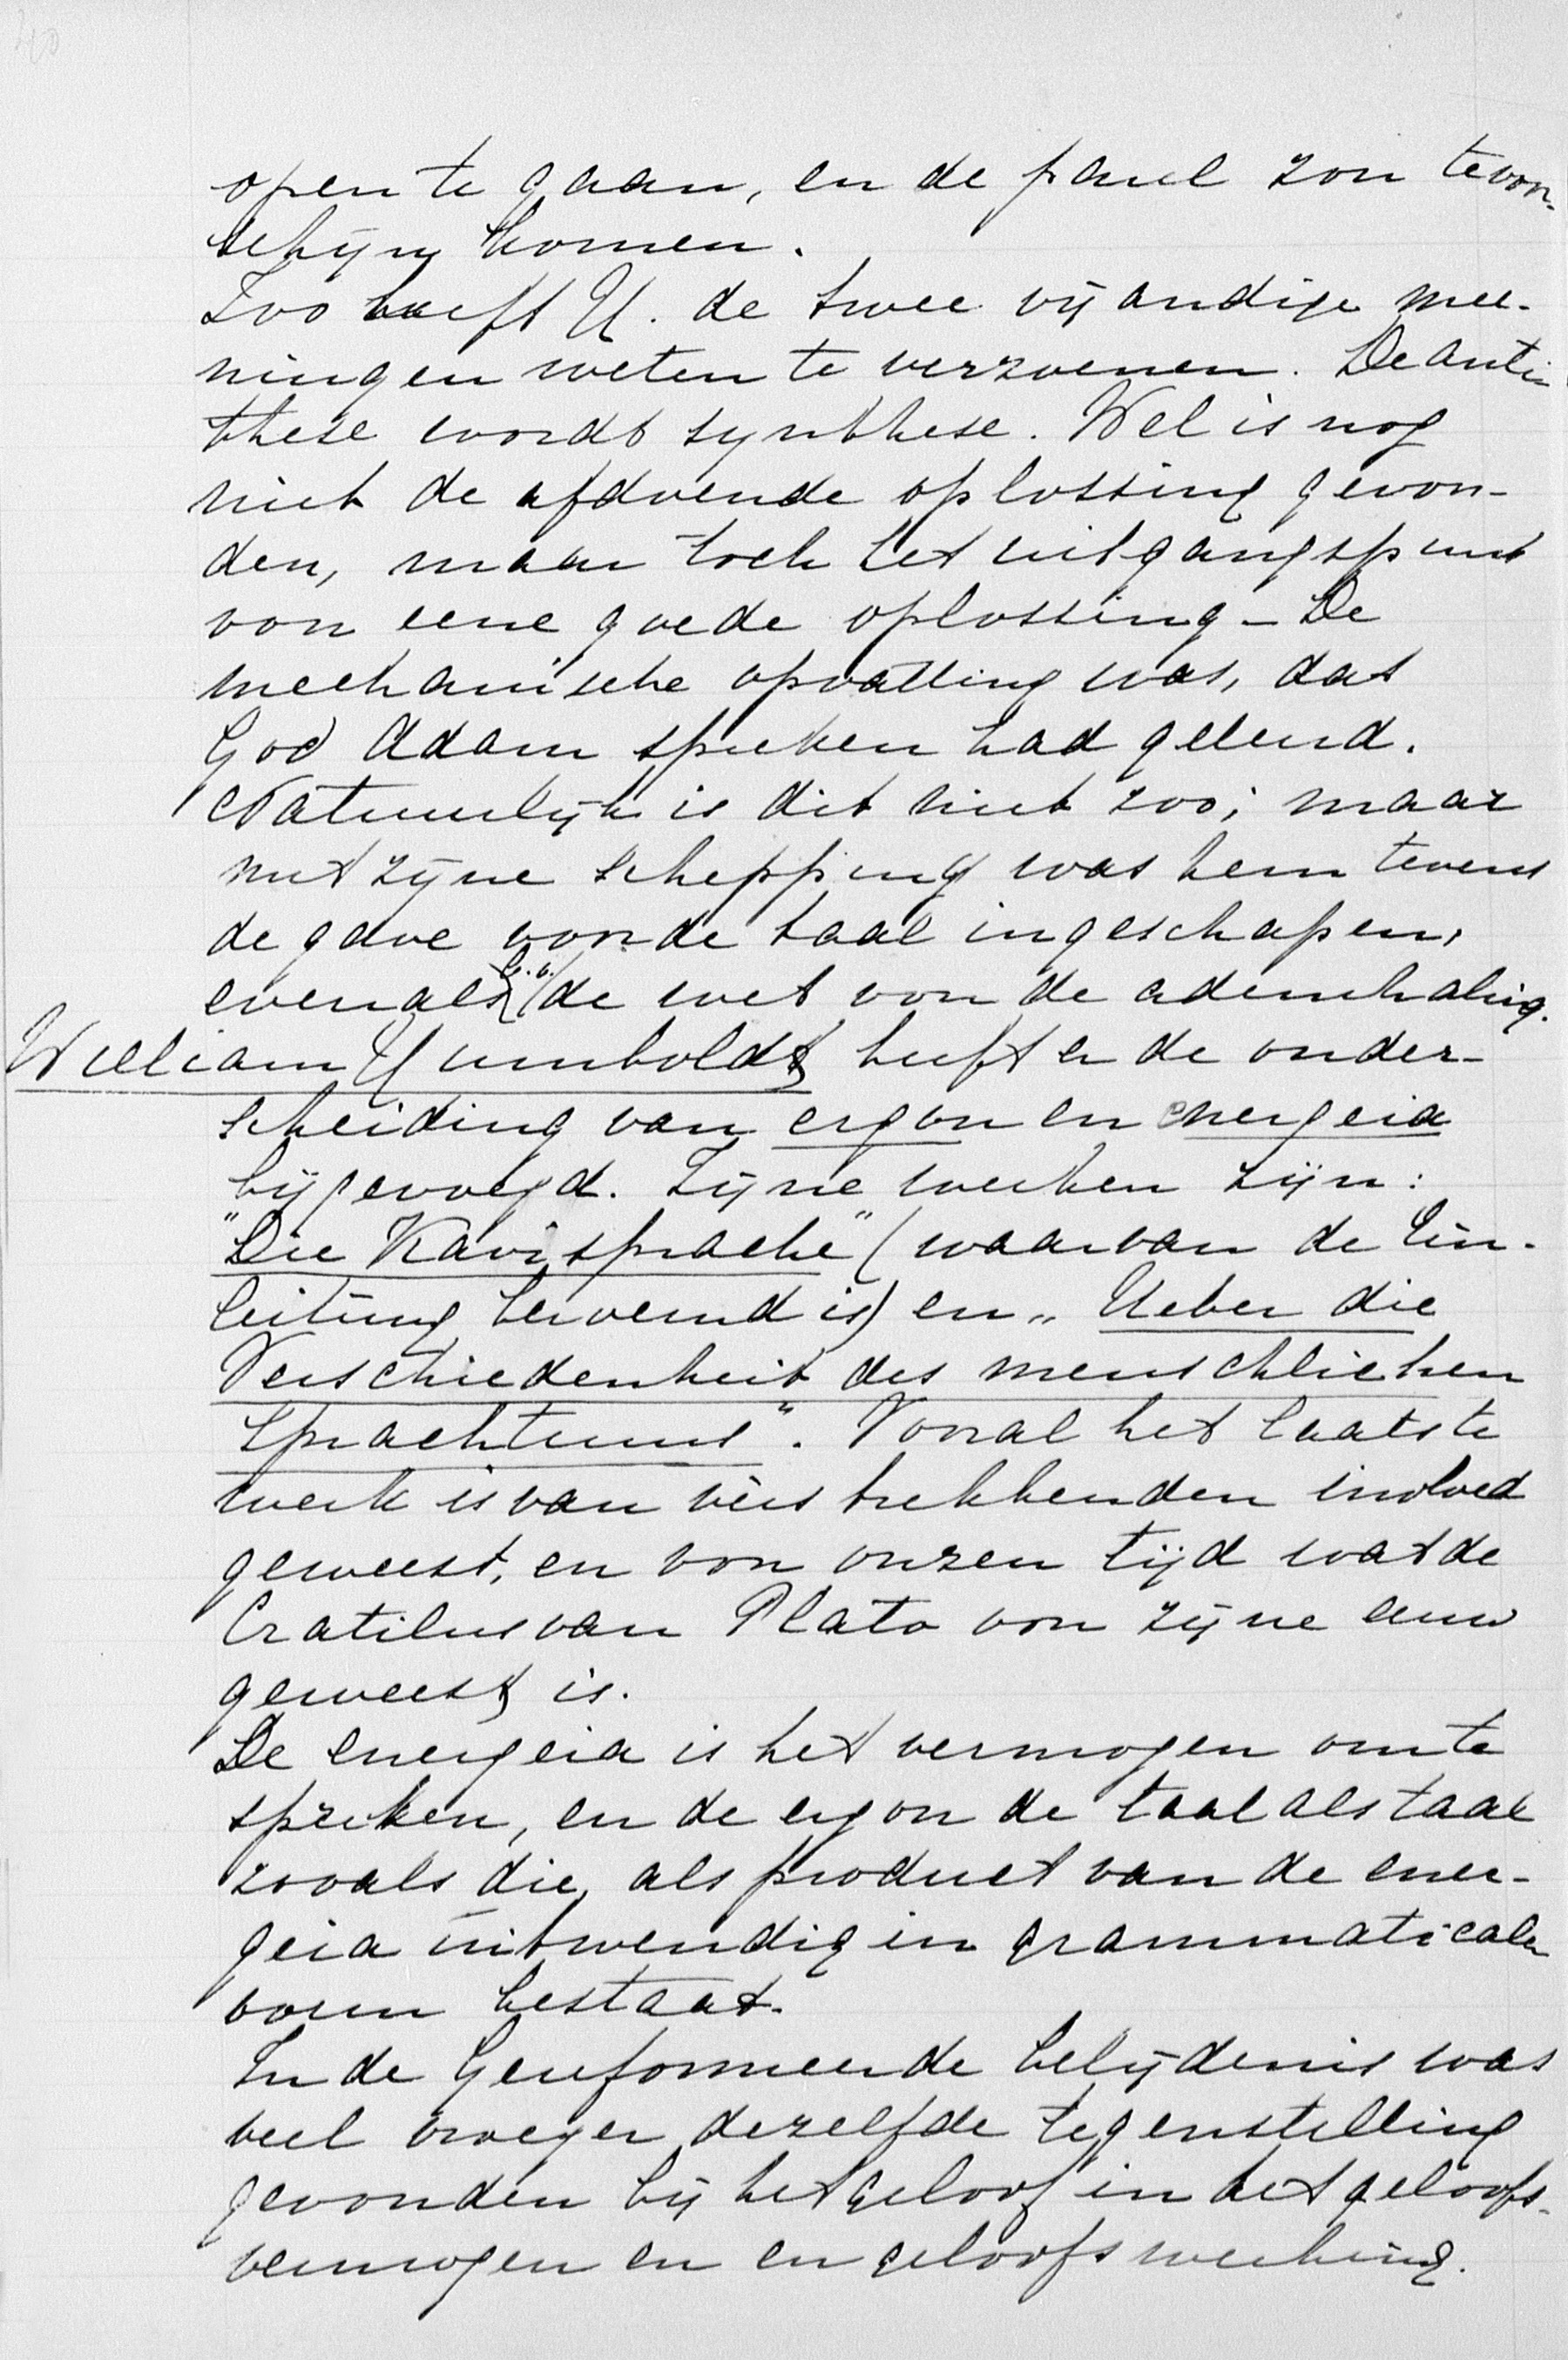 40
open te gaan, en de parel zou tevoor-
schijn komen.
Zoo heeft H. de twee vijandige mee-
ningen weten te verzoenen. De anti-
these wordt synthese. Wel is nog
niet de afdoende oplossing gevon-
den, maar toch het uitgangspunt
voor eene goede oplossing – De
mechanische opvatting was, dat
God Adam spreken had geleerd.
Natuurlijk is dit niet zoo; maar
met zijne schepping was hem tevens
de gave voor de taal ingeschapen,
evenals b.v. de wet voor de ademhaling.
William Humboldt heeft er de onder-
scheiding van ergon en energeia
bijgevoegd. Zijne werken zijn:
"Die Kavisprache" (waarvan de Ein-
leitung beroemd is) en „Ueber die
Verschiedenheit des menschlichen
Sprachtums". Vooral het laatste
werk is van vèrstrekkenden invloed
geweest, en voor onzen tijd wat de
Cratilus van Plato voor zijne eeuw
geweest is.
De energeia is het vermogen om te
spreken, en de ergon de taal als taal
zooals die, als product van de ener-
geia uitwendig in grammaticalen
vorm bestaat.
In de Gereformeerde belijdenis was
veel vroeger dezelfde tegenstelling
gevonden bij het geloof in het geloofs-
vermogen en en geloofswerking.